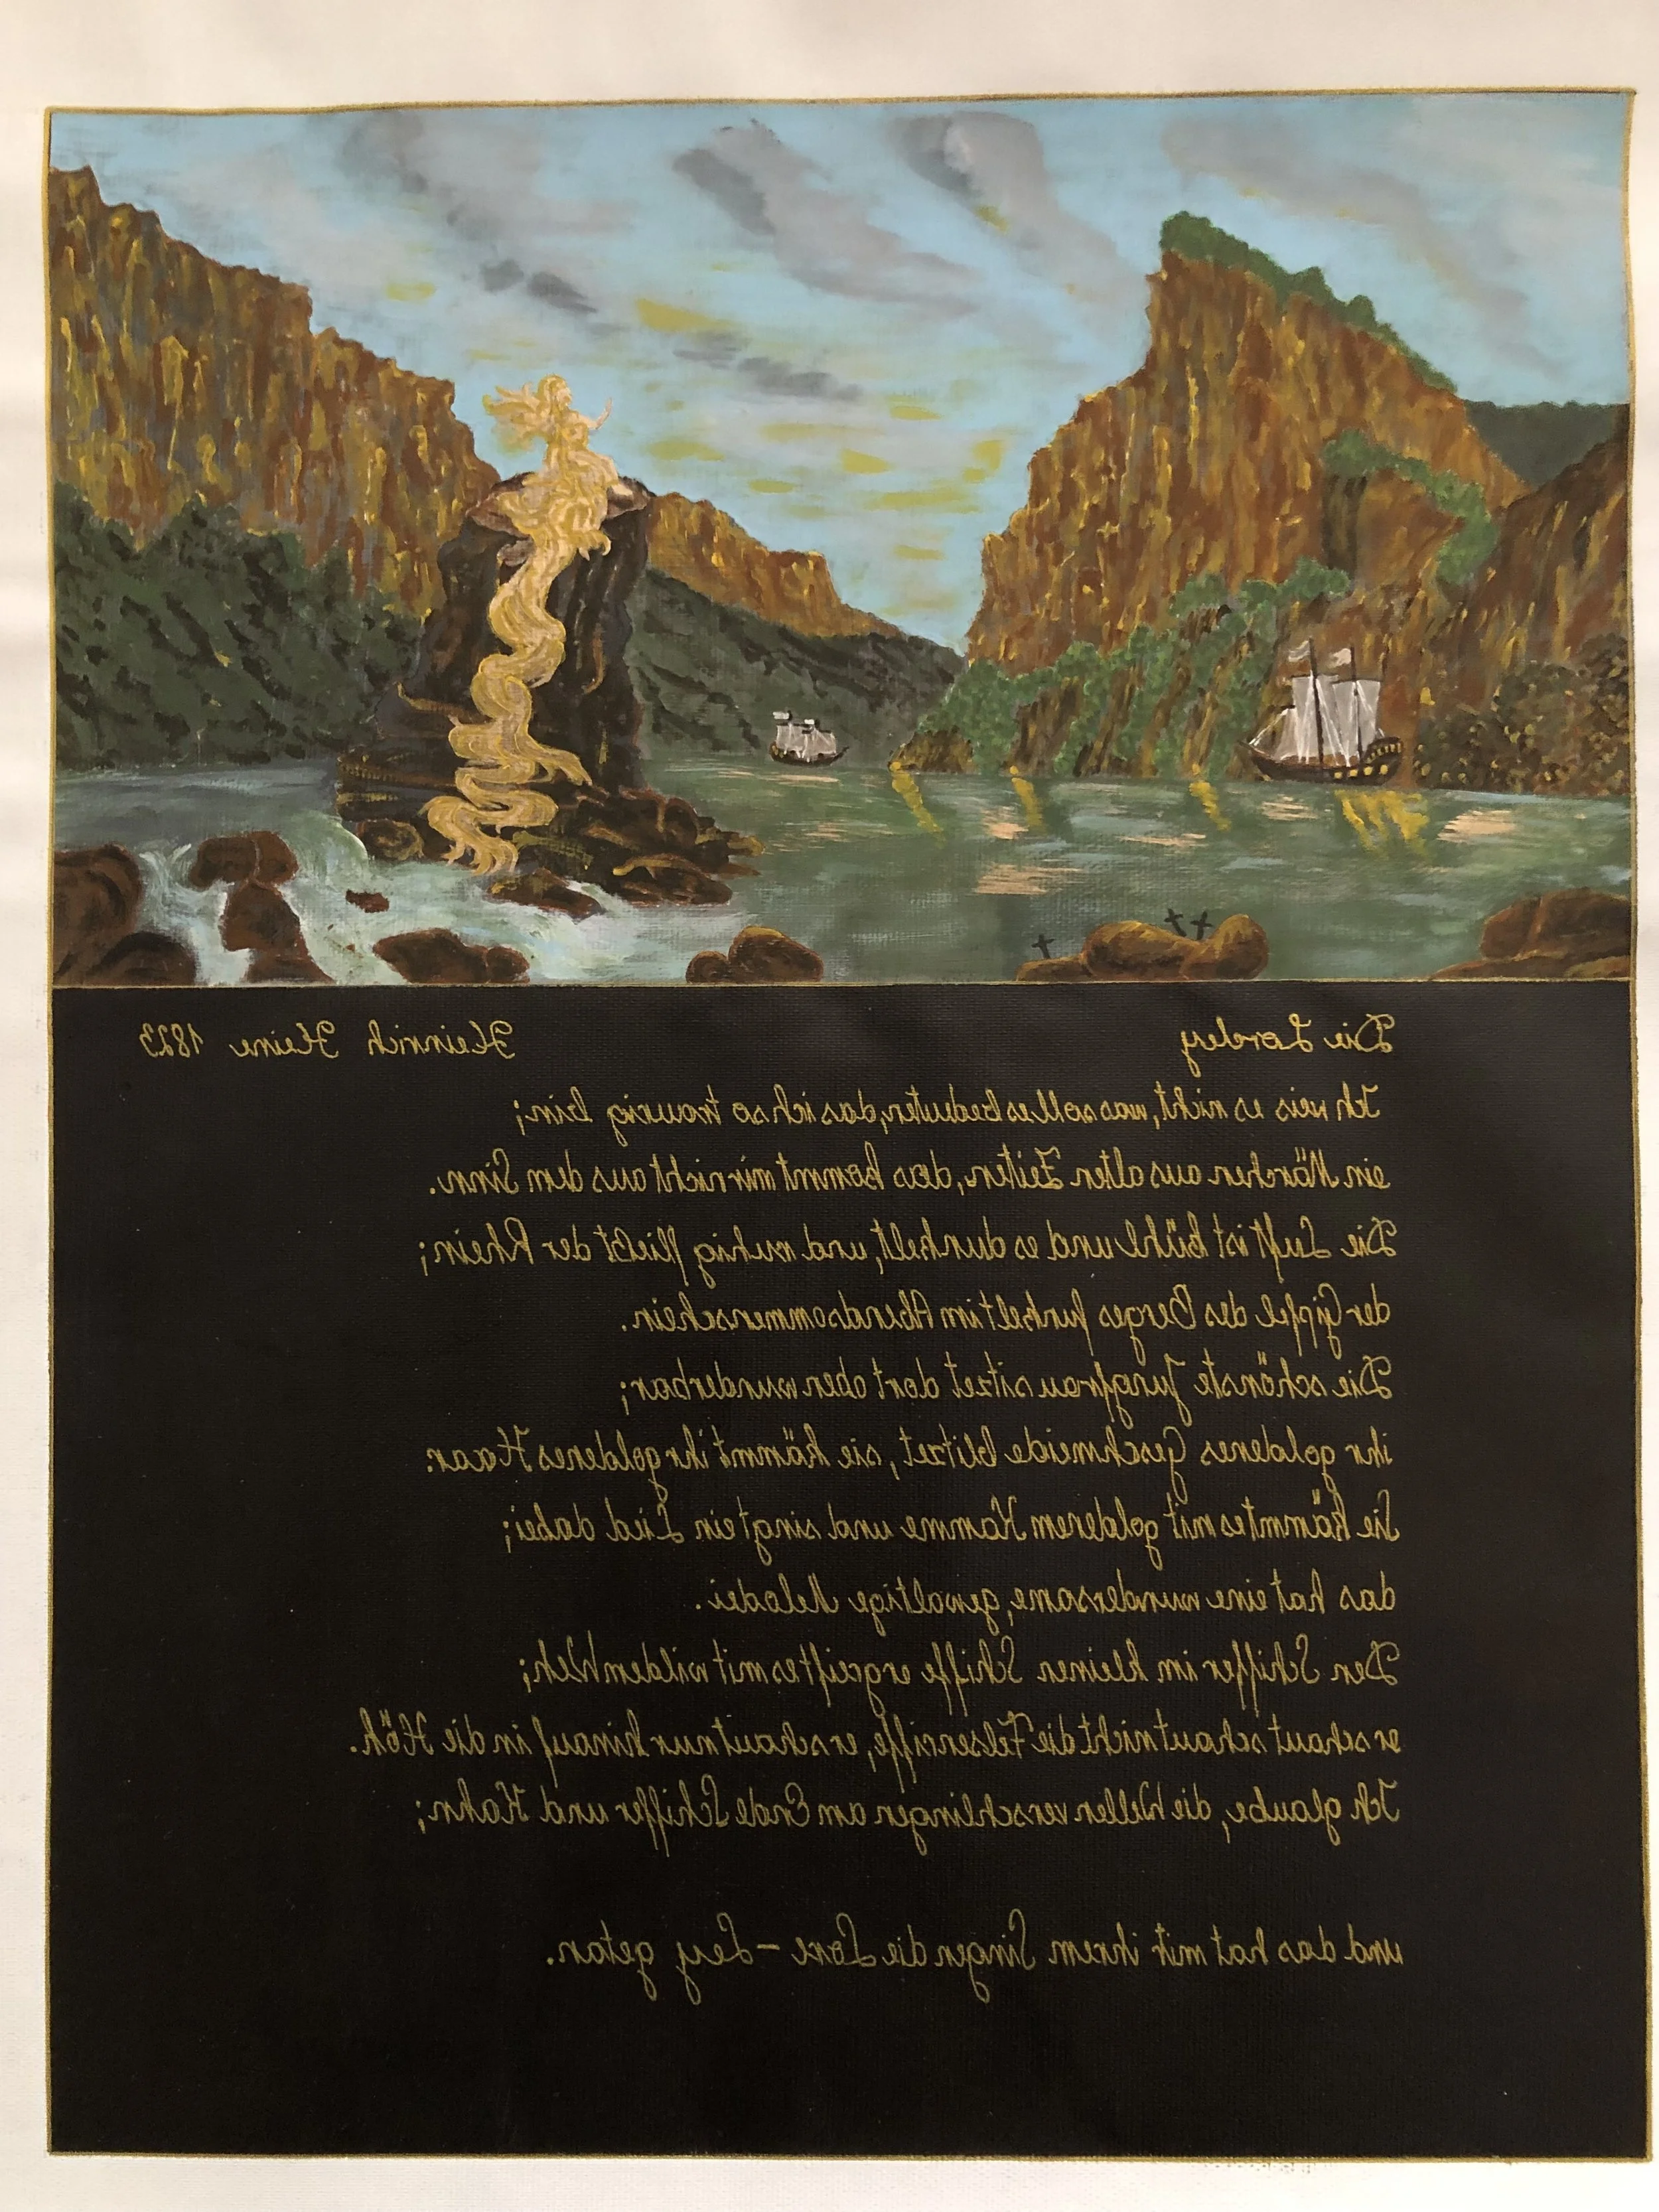 Die Loreley Heinrich Heine 1823
Ich weis es nicht, was soll es bedeuten, das ich so traurig bin;
ein Märchen aus alten Zeiten, das kommt mir nicht aus dem Sinn.
Die Luft ist kühl und es dunkelt, und ruhig fließt der Rhein;
der Gipfel des Berges funkelt im Abendsommerschein.
Die schönste Jungfrau sitzet dort oben wunderbar;
ihr goldenes Geschmeide blitzet, sie kämmt ihr goldenes Haar.
Sie kämmt es mit goldenem Kamme und singt ein Lied dabei;
das hat eine wundersame, gewaltige Melodei.
Den Schiffer im kleinen Schiffe ergreift es mit wildem Weh;
er schaut schaut nicht die Felsenriffe, er schaut nur hinauf in die Höh.
Ich glaube, die Wellen verschlingen am Ende Schiffer und Kahn;
und das hat mit ihrem Singen die Lore-Ley getan.